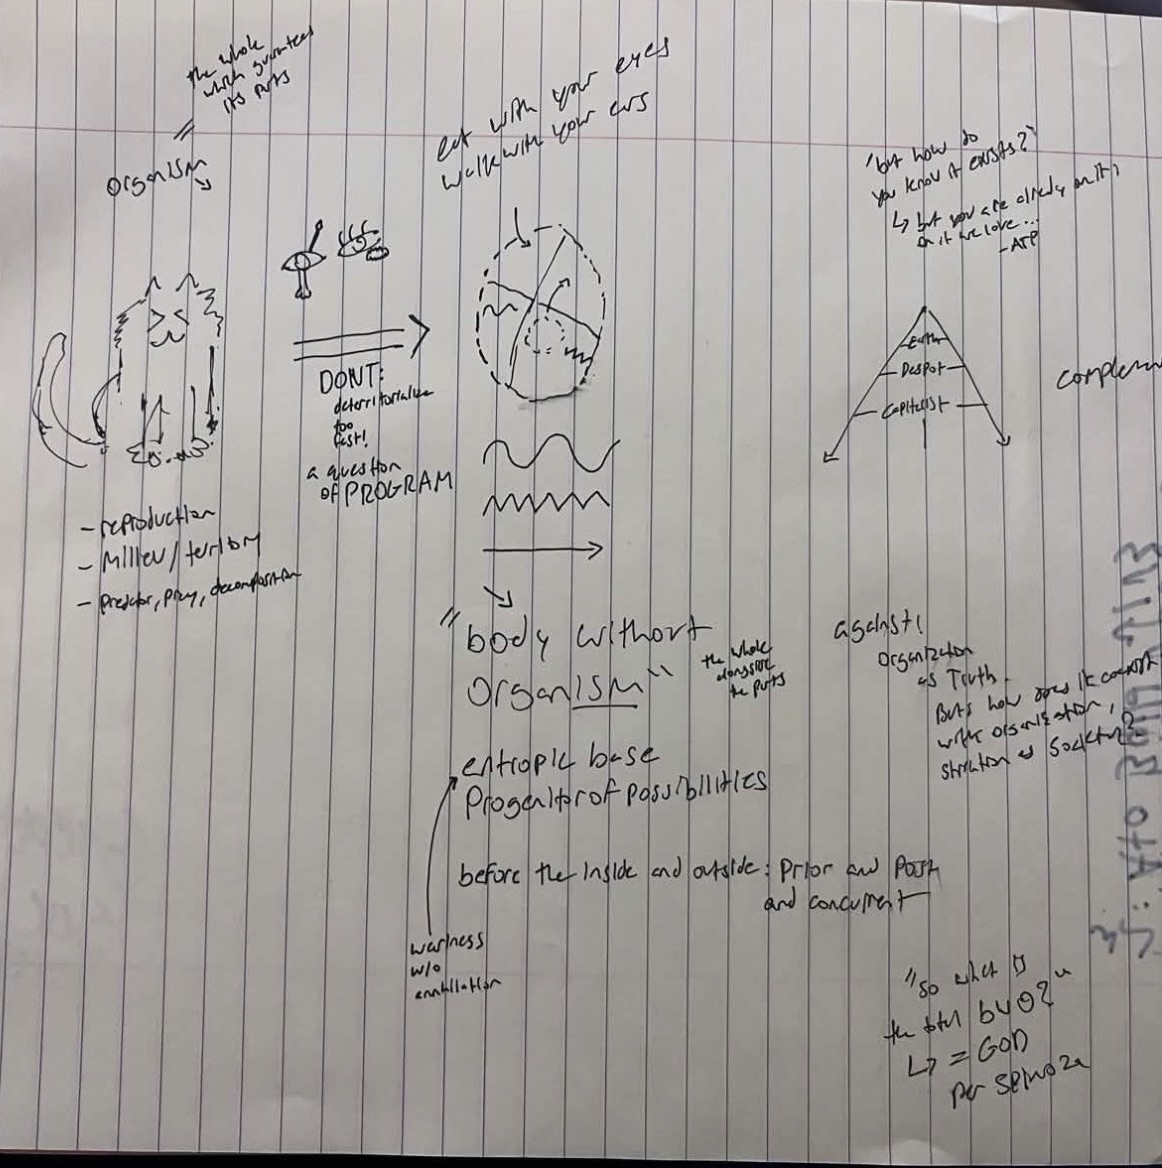 the whole
which guarantees
its parts
organism
eat with your eyes
walk with your ears
"but how do
you know it exists?"
↳ but you are already on it,
on it we love...
-ATP
DONT:
deterritorialize
too
fast!
a question
of PROGRAM
- reproduction
- Milieu/territory
- predator, prey, decomposition
Earth
Despot
Capitalist
"body without
organism"
the whole
alongside
the parts
entropic base
Progenitor of possibilities
before the inside and outside: prior and post
and concurrent
w/o
against!
organization
as Truth.
But: how does it
with organization,
as Society?
"so what is
the total bwo?"
↳ = GOD
per Spinoza